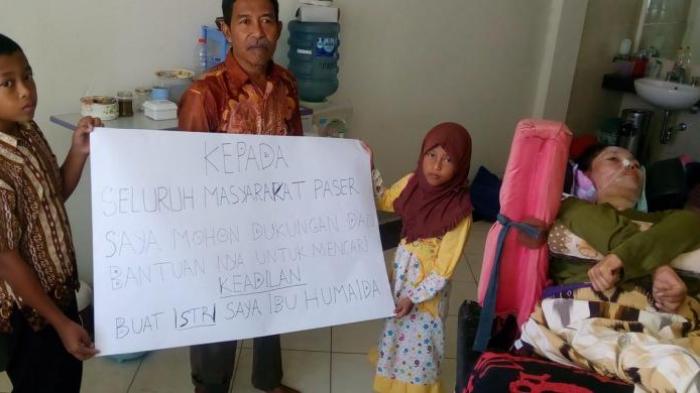 KEPADA
SELURUH MASYARAKAT PASER
SAYA MOHON DUKUNGAN DAN
BANTUAN NYA UNTUK MENCARI
KEADILAN
BUAT ISTRI SAYA IBU HUMAIDA